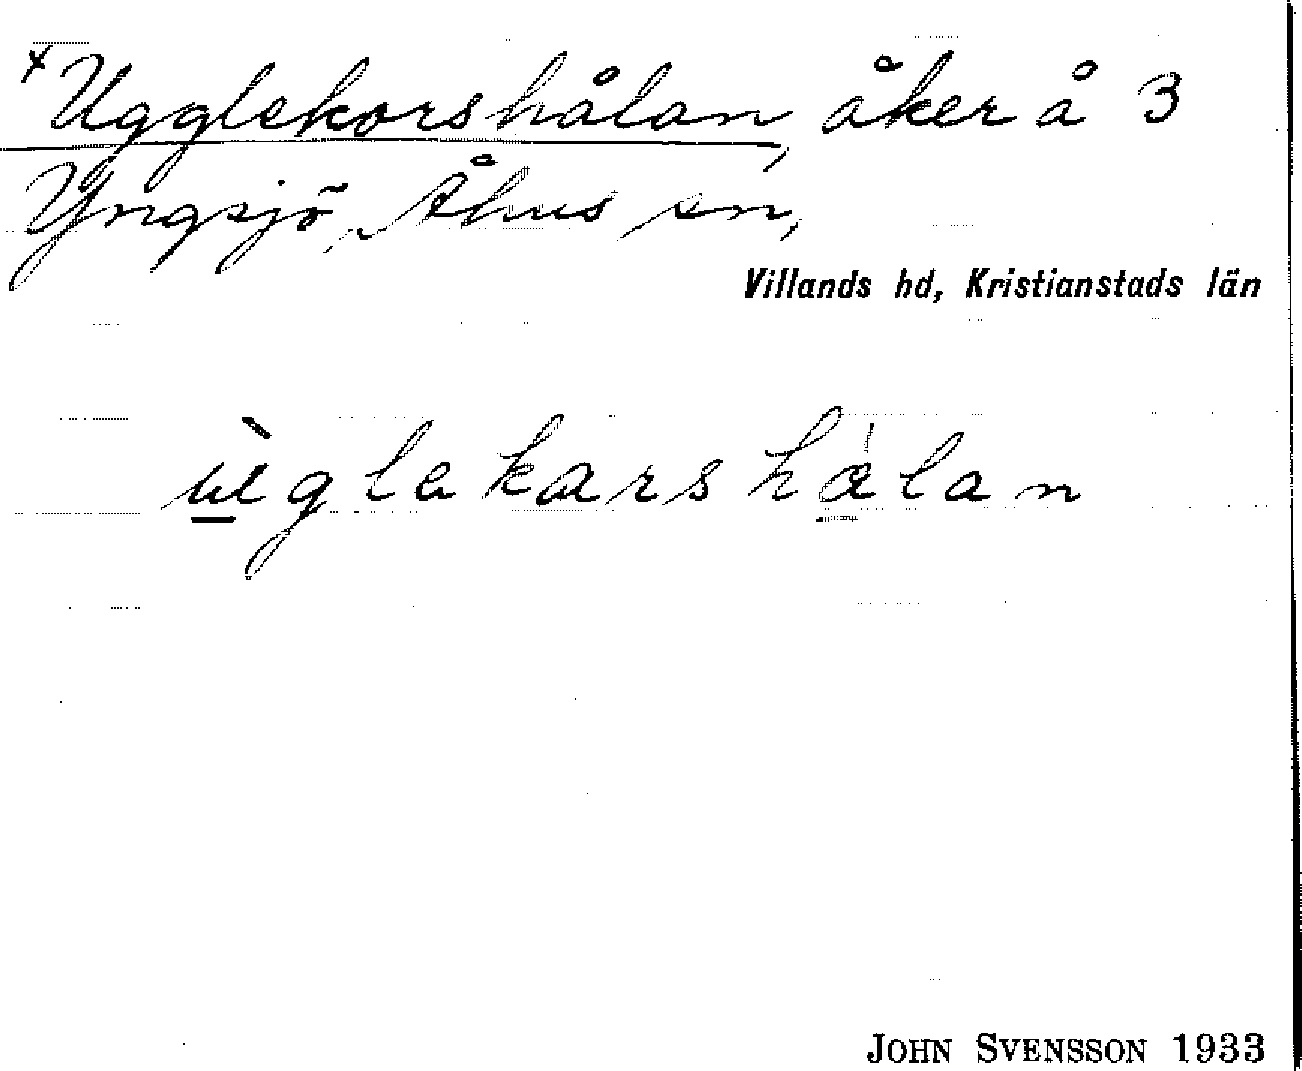 ×Ugglekorshålan, åker å 3
Yngsjö, Åhus sn,
Villands hd, Kristianstads län
ùglekarshálan
JOHN SVENSSON 1933